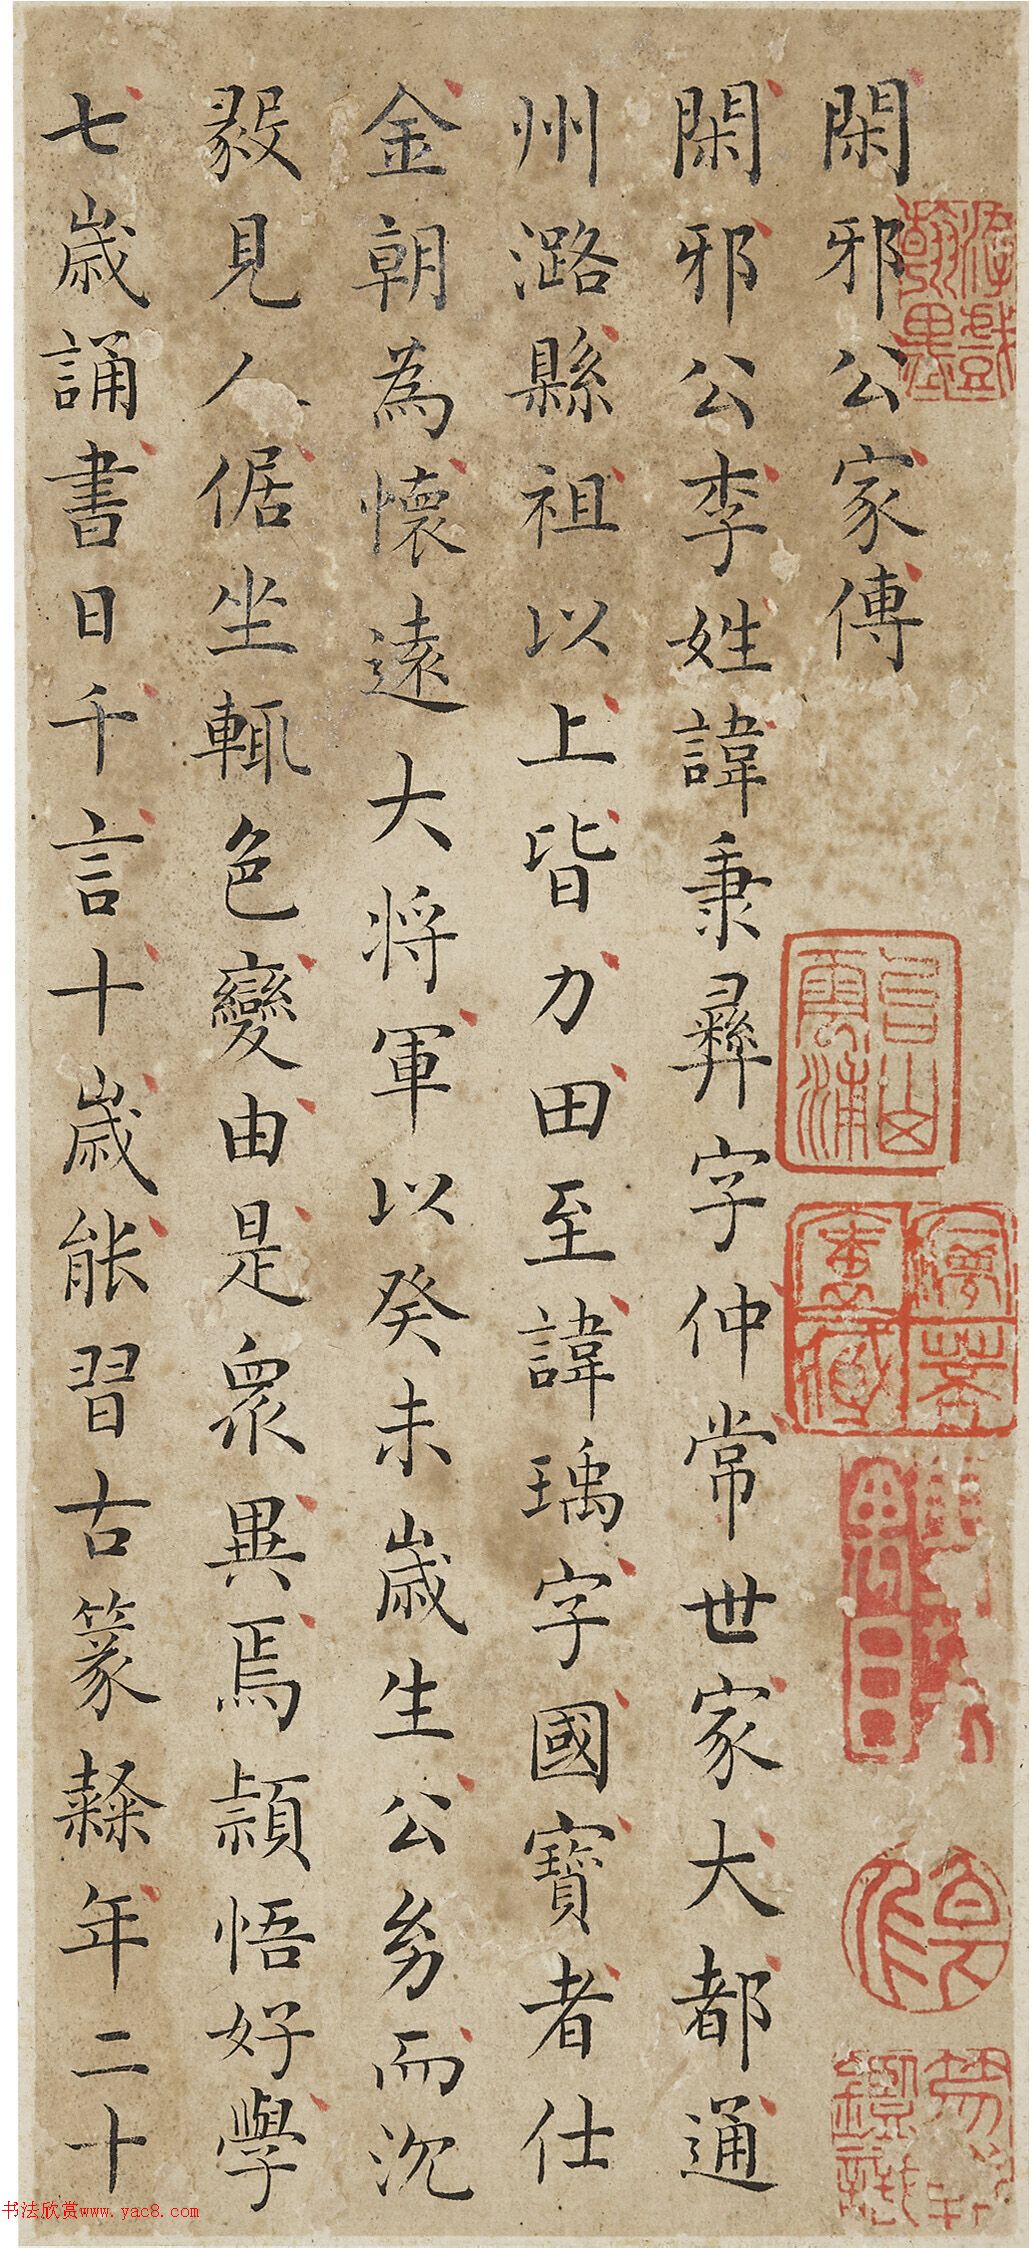 閑邪公家傳
閑邪公李姓諱秉彝字仲常世家大都通
州潞縣祖以上皆力田至諱瑀字國寶者仕
金朝為懷遠大將軍以癸未歲生公幼而沉
毅見人倨坐輒色變由是衆異焉穎悟好學
七歲誦書日千言十歲能習古篆隸年二十
书法欣赏www.yac8.com